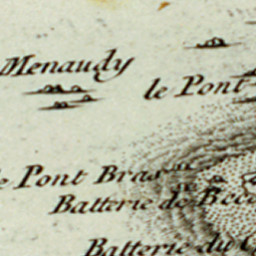 Menaudy
le Pont
Pont Bras
Batterie de
Batterie du